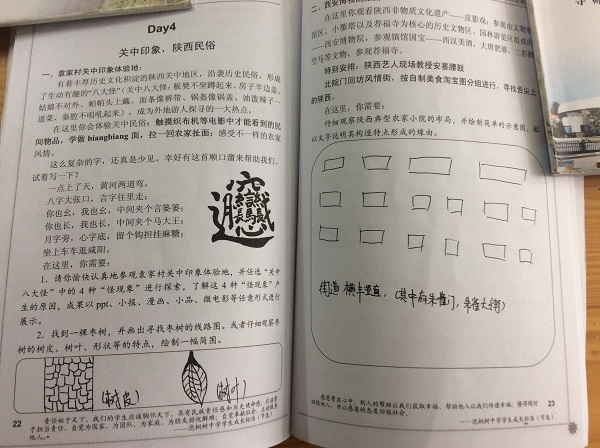 Day4
关中印象，陕西民俗
一、袁家村关中印象体验地：
有着丰厚历史文化积淀的陕西关中地区，沿袭历史民俗，形成
了生动有趣的“八大怪”（关中八大怪：板凳不坐蹲起来、房子半边盖、
姑娘不对外、帕帕头上戴、面条像裤带、锅盔像锅盖、油泼辣子一
道菜、秦腔不唱吼起来），成为外地游人探寻的一大热点。
在这里你会体验关中民俗，触摸织布机等电影中才能看到的民
间物品，学做 biangbiang 面，拉一回农家挂面；感受不一样的农家
风情。
这么复杂的字，还真是少见，幸好有这首顺口溜来帮助我们，
试着写一下？
一点上了天，黄河两道弯，
八字大张口，言字往里走；
你也幺，我也幺，中间夹个言篓篓；
你也长，我也长，中间夹个马大王；
月字旁，心字底，留个钩担挂麻糖；
坐上车车逛咸阳。
在这里，你需要：
1．请你愉快认真地参观袁家村关中印象体验地，并任选“关中
八大怪”中的 4 种“怪现象”进行探索，了解这 4 种“怪现象”产
生的原因，成果以 ppt、小报、漫画、小品、微电影等任意形式进行
展示。
2．找到一棵枣树，并画出寻找枣树的线路图。或者仔细观察枣
树的树皮、树叶、形状等的特点，绘制一幅简图。
（树皮）
（树叶）
22
二、西安博物院
在这里你观看陕西非物质文化遗产——皮影戏；参观由文物展
馆区、小雁塔以及荐福寺为核心的历史文物区、园林游览区组成的
——西安博物院，参观镇馆国宝——西汉美酒，大唐肥婆、三彩腾
空马等文物，参观荐福寺。
特别安排：陕西艺人现场教授安塞腰鼓
北院门回坊风情街，按自制美食淘宝图分组进行，寻找舌尖上
的陕西。
在这里，你需要：
仔细观察陕西典型农家小院的布局，并绘制简单的示意图，
以文字说明其构造特点形成的缘由。
街道 横平竖直，（其中有朱雀门，朱雀大街）
23